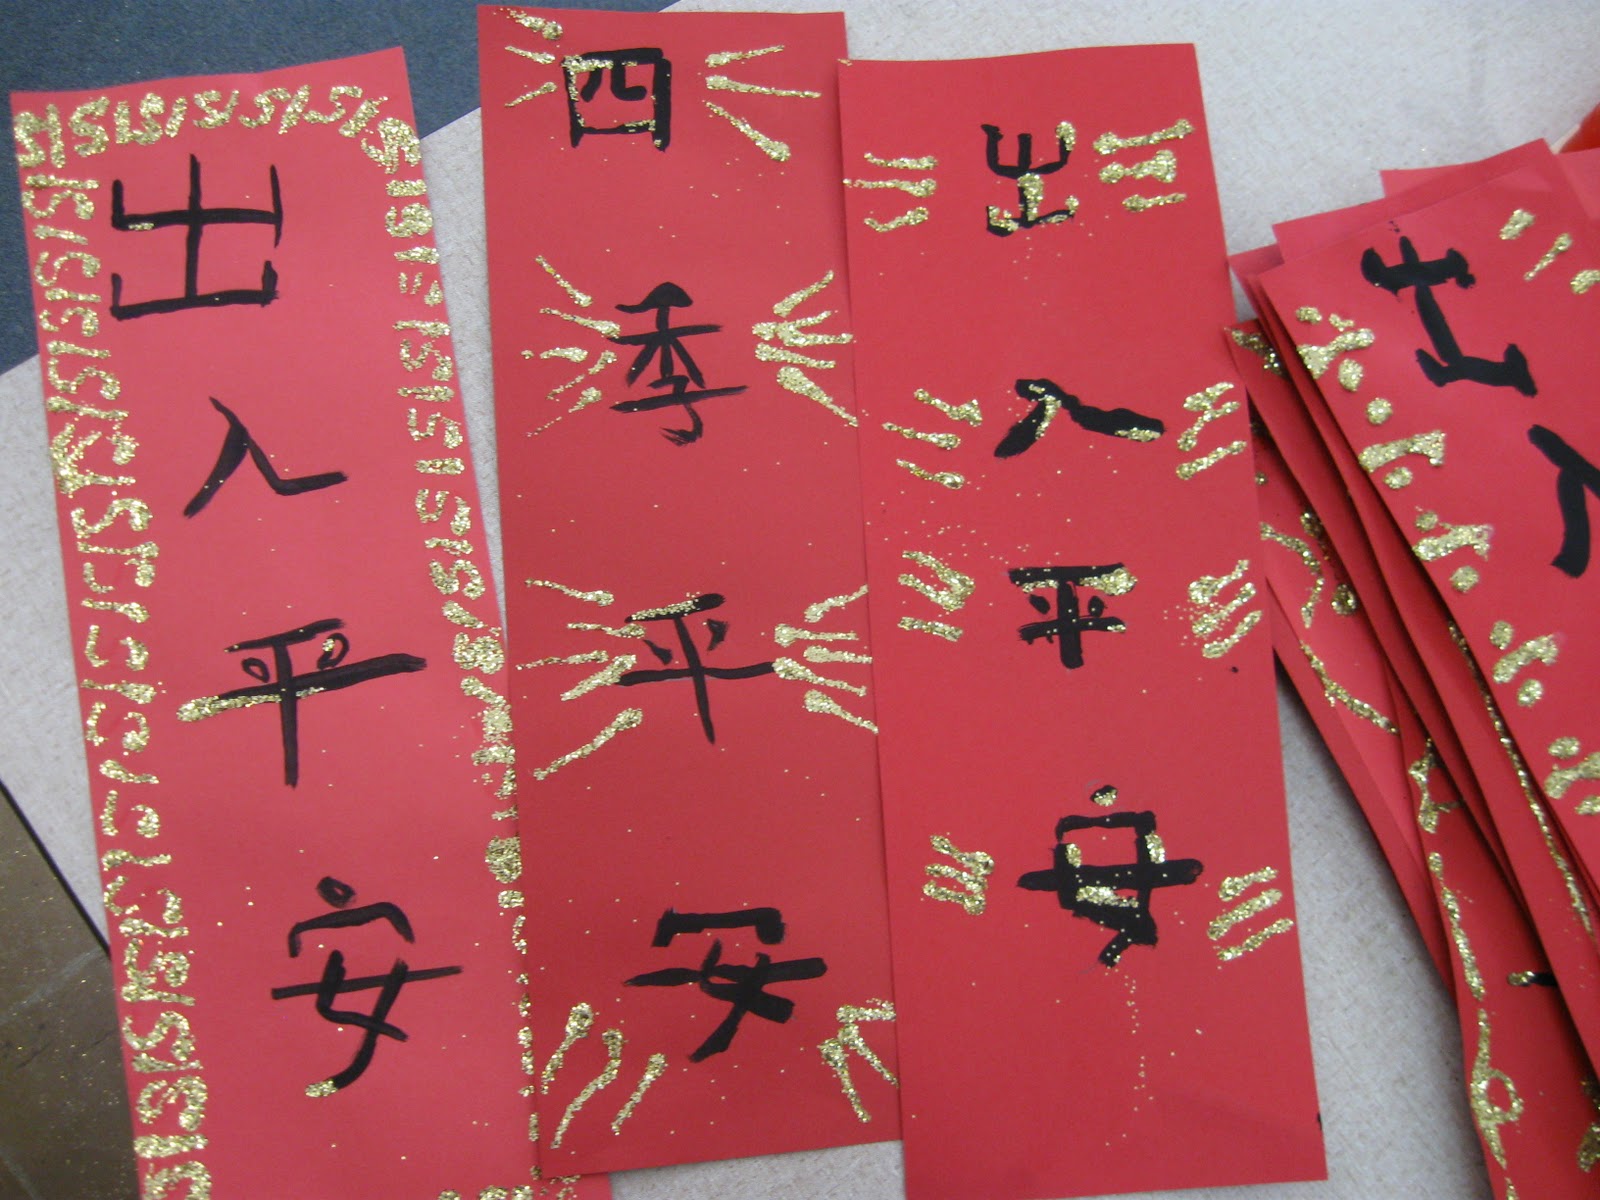 出入平安
四季平安
出入平安